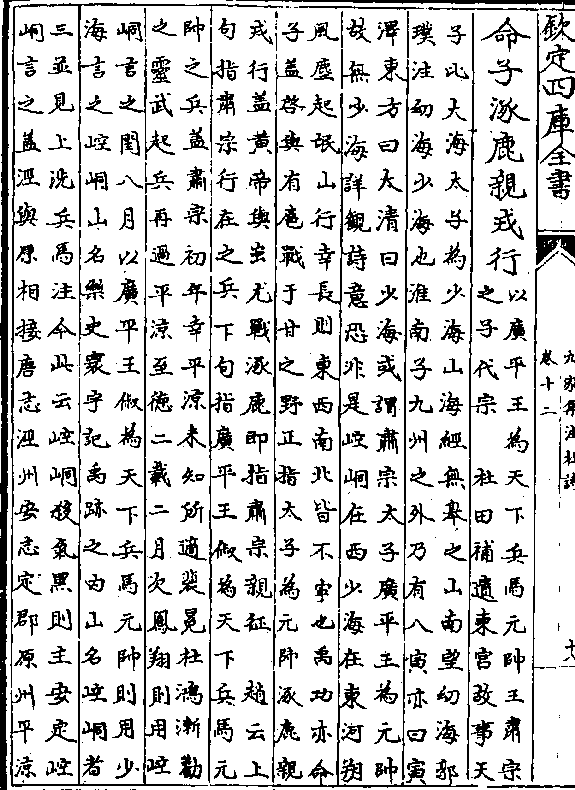 欽定四庫全書
九家集注杜詩
卷十二
十六
命子涿鹿親戎行以廣平王為天下兵馬元帥王肅宗
之子代宗 杜田補遺東宫故事天
子比大海太子為少海山海經無皋之山南望幼海郭
璞注幼海少海也淮南子九州之外乃有八寅亦曰寅
澤東方曰大清曰少海或謂肅宗太子廣平王為元帥
故無少海詳觀詩意恐非是崆峒在西少海在東河朔
風塵起岷山行幸長則東西南北皆不寧也禹功亦命
子蓋啓與有扈戰于甘之野正指太子為元帥涿鹿親
戎行蓋黄帝與蚩尤戰涿鹿即指肅宗親征 趙云上
句指肅宗行在之兵下句指廣平王俶為天下兵馬元
帥之兵蓋肅宗初年幸平涼未知所適裴冕杜鴻漸勸
之靈武起兵再過平涼至德二載二月次鳳翔則用崆
峒言之閏八月以廣平王俶為天下兵馬元帥則用少
海言之崆峒山名樂史寰宇記禹跡之内山名崆峒者
三並見上洗兵馬注今此云崆峒殺氣黑則主安定崆
峒言之蓋涇與原相接唐志涇州安定郡原州平涼